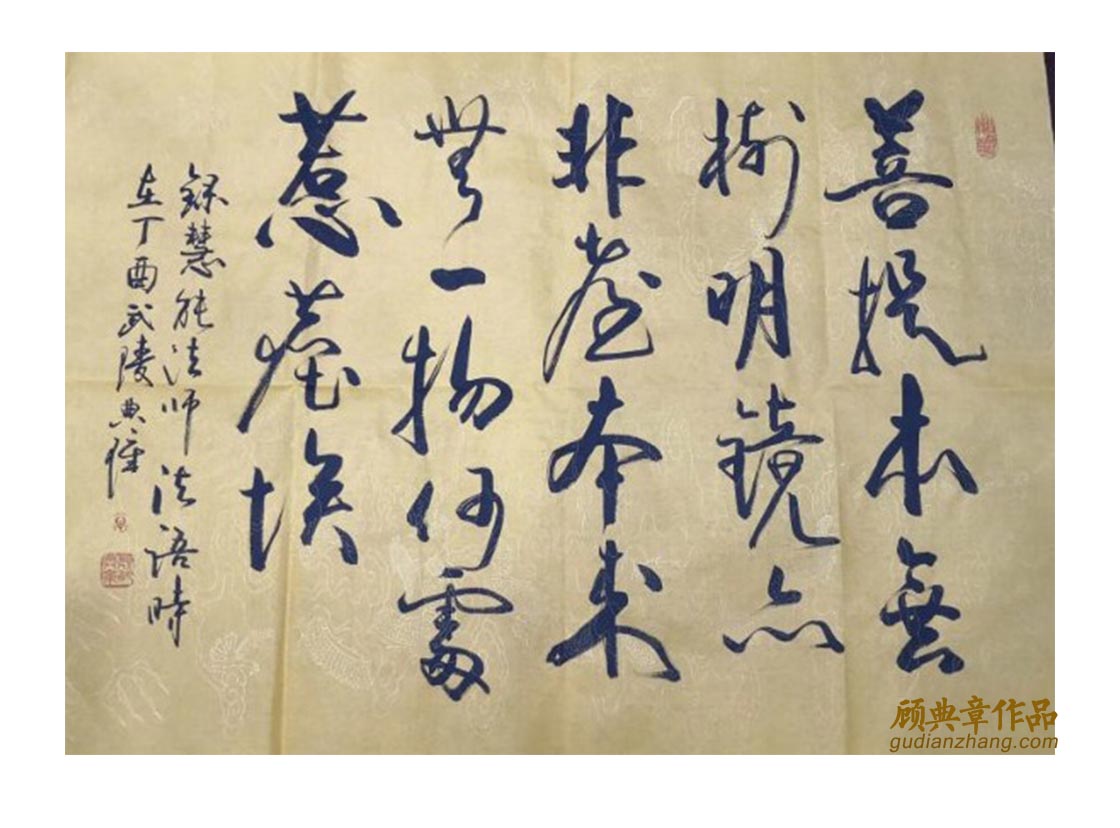 菩提本無
樹明鏡亦
非臺本来
無一物何處
惹塵埃
録慧能法师法語時
在丁酉武陵典
顾典章作品
gudianzhang.com